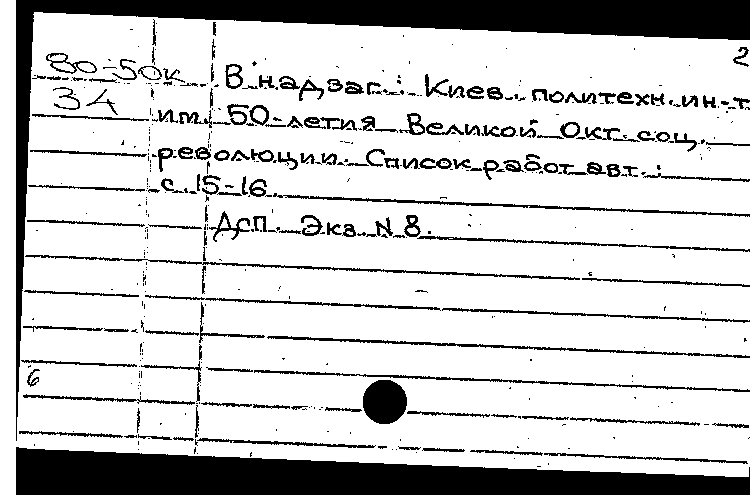 2
80-50к В надзаг.: Киев. политехн. ин-т
34 им. 50-летия Великой Окт. соц.
революции. Список работ авт.:
с. 15-16.
Дсп. Экз. N 8.
6